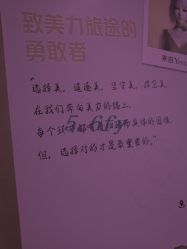 致美力旅途的
勇敢者
来自Y
“选择美，追逐美，坚守美，探索美，
在我们奔向美力的路上，
每个环节都有具体而具体的困难，
但，选择对的才是最重要的。”